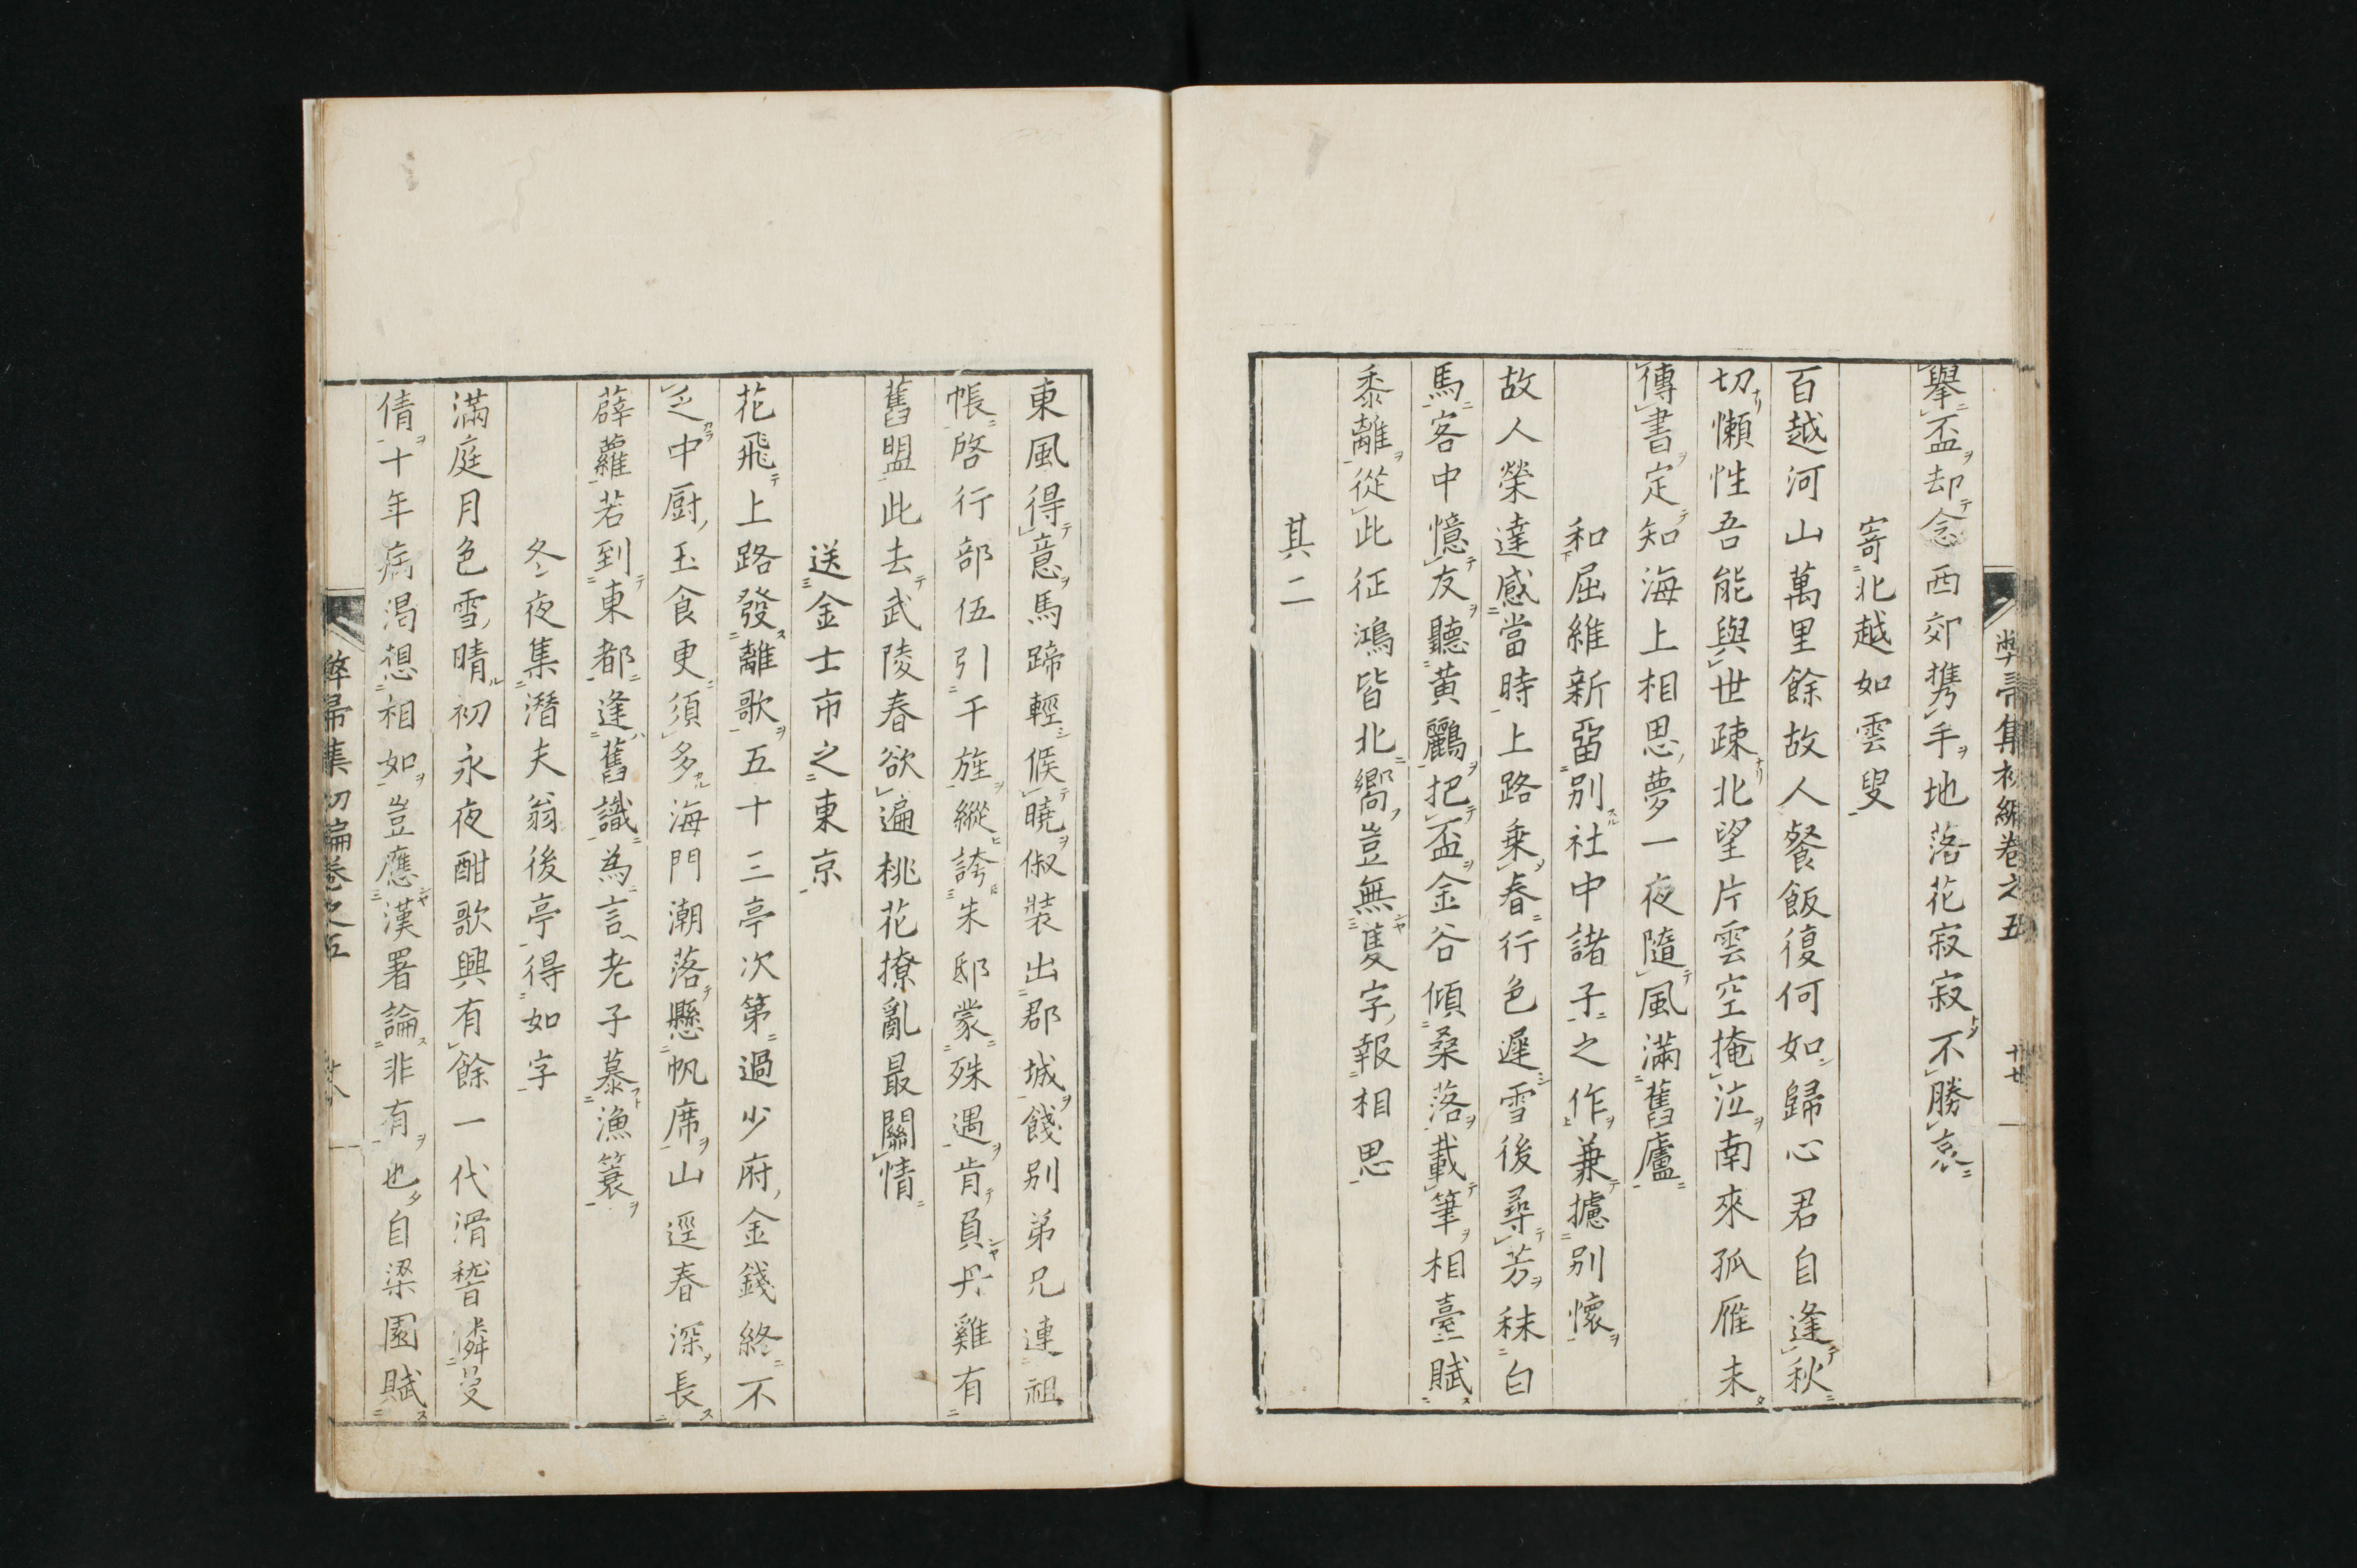 弊帚集初編卷之五
十七
擧盃却念西郊携手地落花寂寂不勝哀
寄北越如雲叟
百越河山萬里餘故人餐飯復何如歸心君自逢秋
切懶性吾能與世疎北望片雲空掩泣南來孤雁未
傳書定知海上相思夢一夜隨風滿舊廬
和屈維新畱別社中諸子之作兼攄別懷
故人榮達感當時上路乘春行色遲雪後尋芳秣白
馬客中憶友聽黃鸝把盃金谷傾桑落載筆相臺賦
黍離從此征鴻皆北嚮豈無隻字報相思
其二
東風得意馬蹄輕候曉俶裝出郡城餞別弟兄連祖
帳啓行部伍引千旌縱誇朱邸蒙殊遇肯負丹雞有
舊盟此去武陵春欲遍桃花撩亂最關情
送金士市之東京
花飛上路發離歌五十三亭次第過少府金錢終不
乏中厨玉食更須多海門潮落懸帆席山逕春深長
薜蘿若到東都逢舊識為言老子慕漁簑
冬夜集潛夫翁後亭得如字
滿庭月色雪晴初永夜酣歌興有餘一代滑稽憐曼
倩十年病渴想相如豈應漢署論非有也自梁園賦
弊帚集初編卷之五